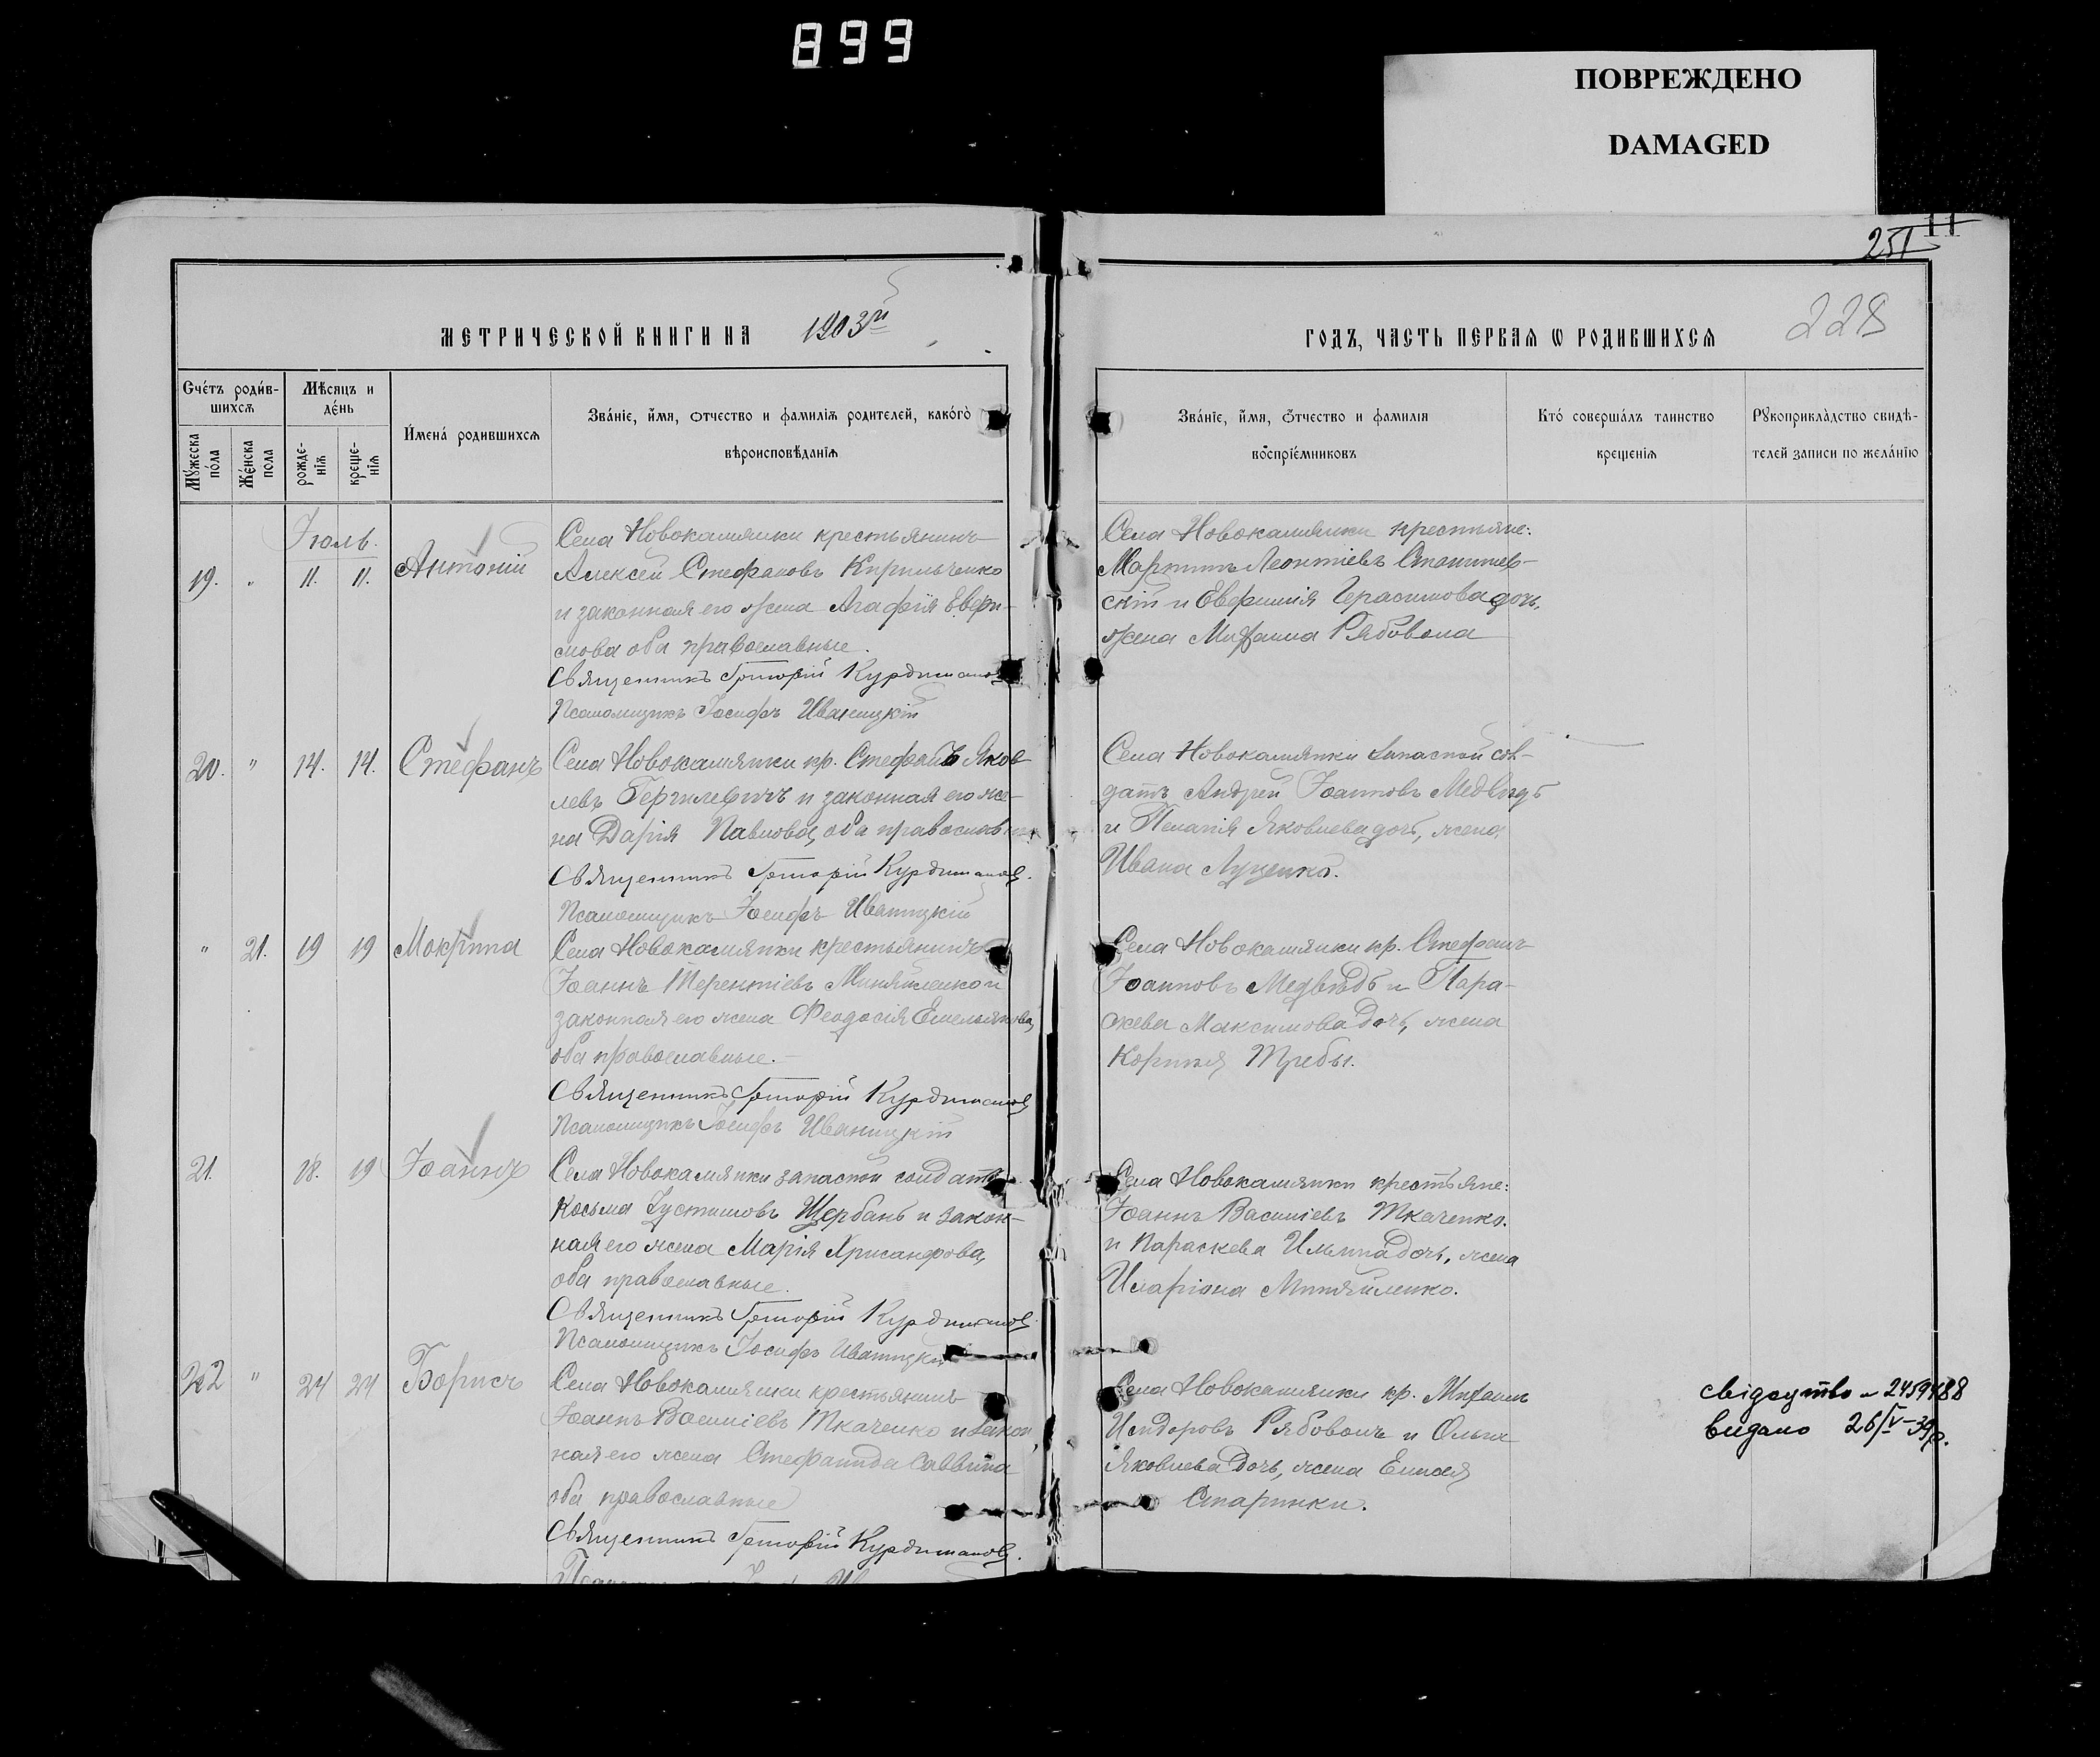 899
ПОВРЕЖДЕНО
DAMAGED
11
251
228
МЕТРИЧЕСКОЙ КНИГИ НА 1903й
ГОДЪ, ЧАСТЬ ПЕРВАЯ Ѡ РОДИВШИХСЯ
Счетъ родив-
шихся
Мѣсяцъ и
день
Мужеска
пола
Женска
пола
рожде-
нія
креще-
нія
Имена родившихся
Званіе, имя, отчество и фамилія родителей, какого
вѣроисповѣданія
Званіе, имя, отчество и фамилія
воспріемниковъ
Кто совершалъ таинство
крещенія
Рукоприкладство свидѣ-
телей записи по желанію
Іюль.
19. " 11. 11. Антоній
Села Новокамянки крестьянинъ
Алексѣй Стефановъ Кирильченко
и законная его жена Агафія Евфи-
мова оба православные.
Священникъ Григорій Курдиманов
Псаломщикъ Іосифъ Иваницкій
Села Новокамянки крестьяне:
Мартинъ Леонтіевъ
скій и Евфимія Герасимова дочь,
жена Михаила Рябовола
20. " 14. 14. Стефанъ
Села Новокамянки кр. Стефанъ Яков-
левъ и законная его же-
на Дарія Павлова, оба православн
Священникъ Григорій Курдиманов.
Псаломщикъ Іосифъ Иваницкій
Села Новокамянки запасной сол-
датъ Андрей Іоанновъ Медвѣдь
и Пелагія Яковлева дочь, жена
Ивана Луценко.
" 21. 19 19 Мокрина
Села Новокамянки крестьянинъ
Іоаннъ Терентіевъ Миняйленко и
законная его жена Феодосія Емельянова,
оба православные.
Священникъ Григорій Курдиманов
Псаломщикъ Іосифъ Иваницкій
Села Новокамянки кр. Стефанъ
Іоанновъ Медвѣдь и Пара-
скева Максимова дочь, жена
Корнія Требы.
21. 18. 19 Іоаннъ
Села Новокамянки запасной солдатъ
Косьма Іустиновъ Щербань и закон-
ная его жена Марія Хрисанфова,
оба православные.
Священникъ Григорій Курдиманов
Псаломщикъ Іосифъ Иваницкій
Села Новокамянки крестьяне:
Іоаннъ Василіевъ Ткаченко.
и Параскева Ильина дочь, жена
Иларіона Миняйленко.
22 " 24 24 Борисъ
Села Новокамянки крестьянинъ
Іоаннъ Василіевъ Ткаченко и закон
ная его жена Стефанида Саввина
оба православные
Священникъ Григорій Курдиманов.
Села Новокамянки кр. Михаилъ
Исидоровъ Рябоволъ и Ольга
Яковлева дочь, жена Елисея
Старинки.
свідоцтво
видано 26/IV-39р.